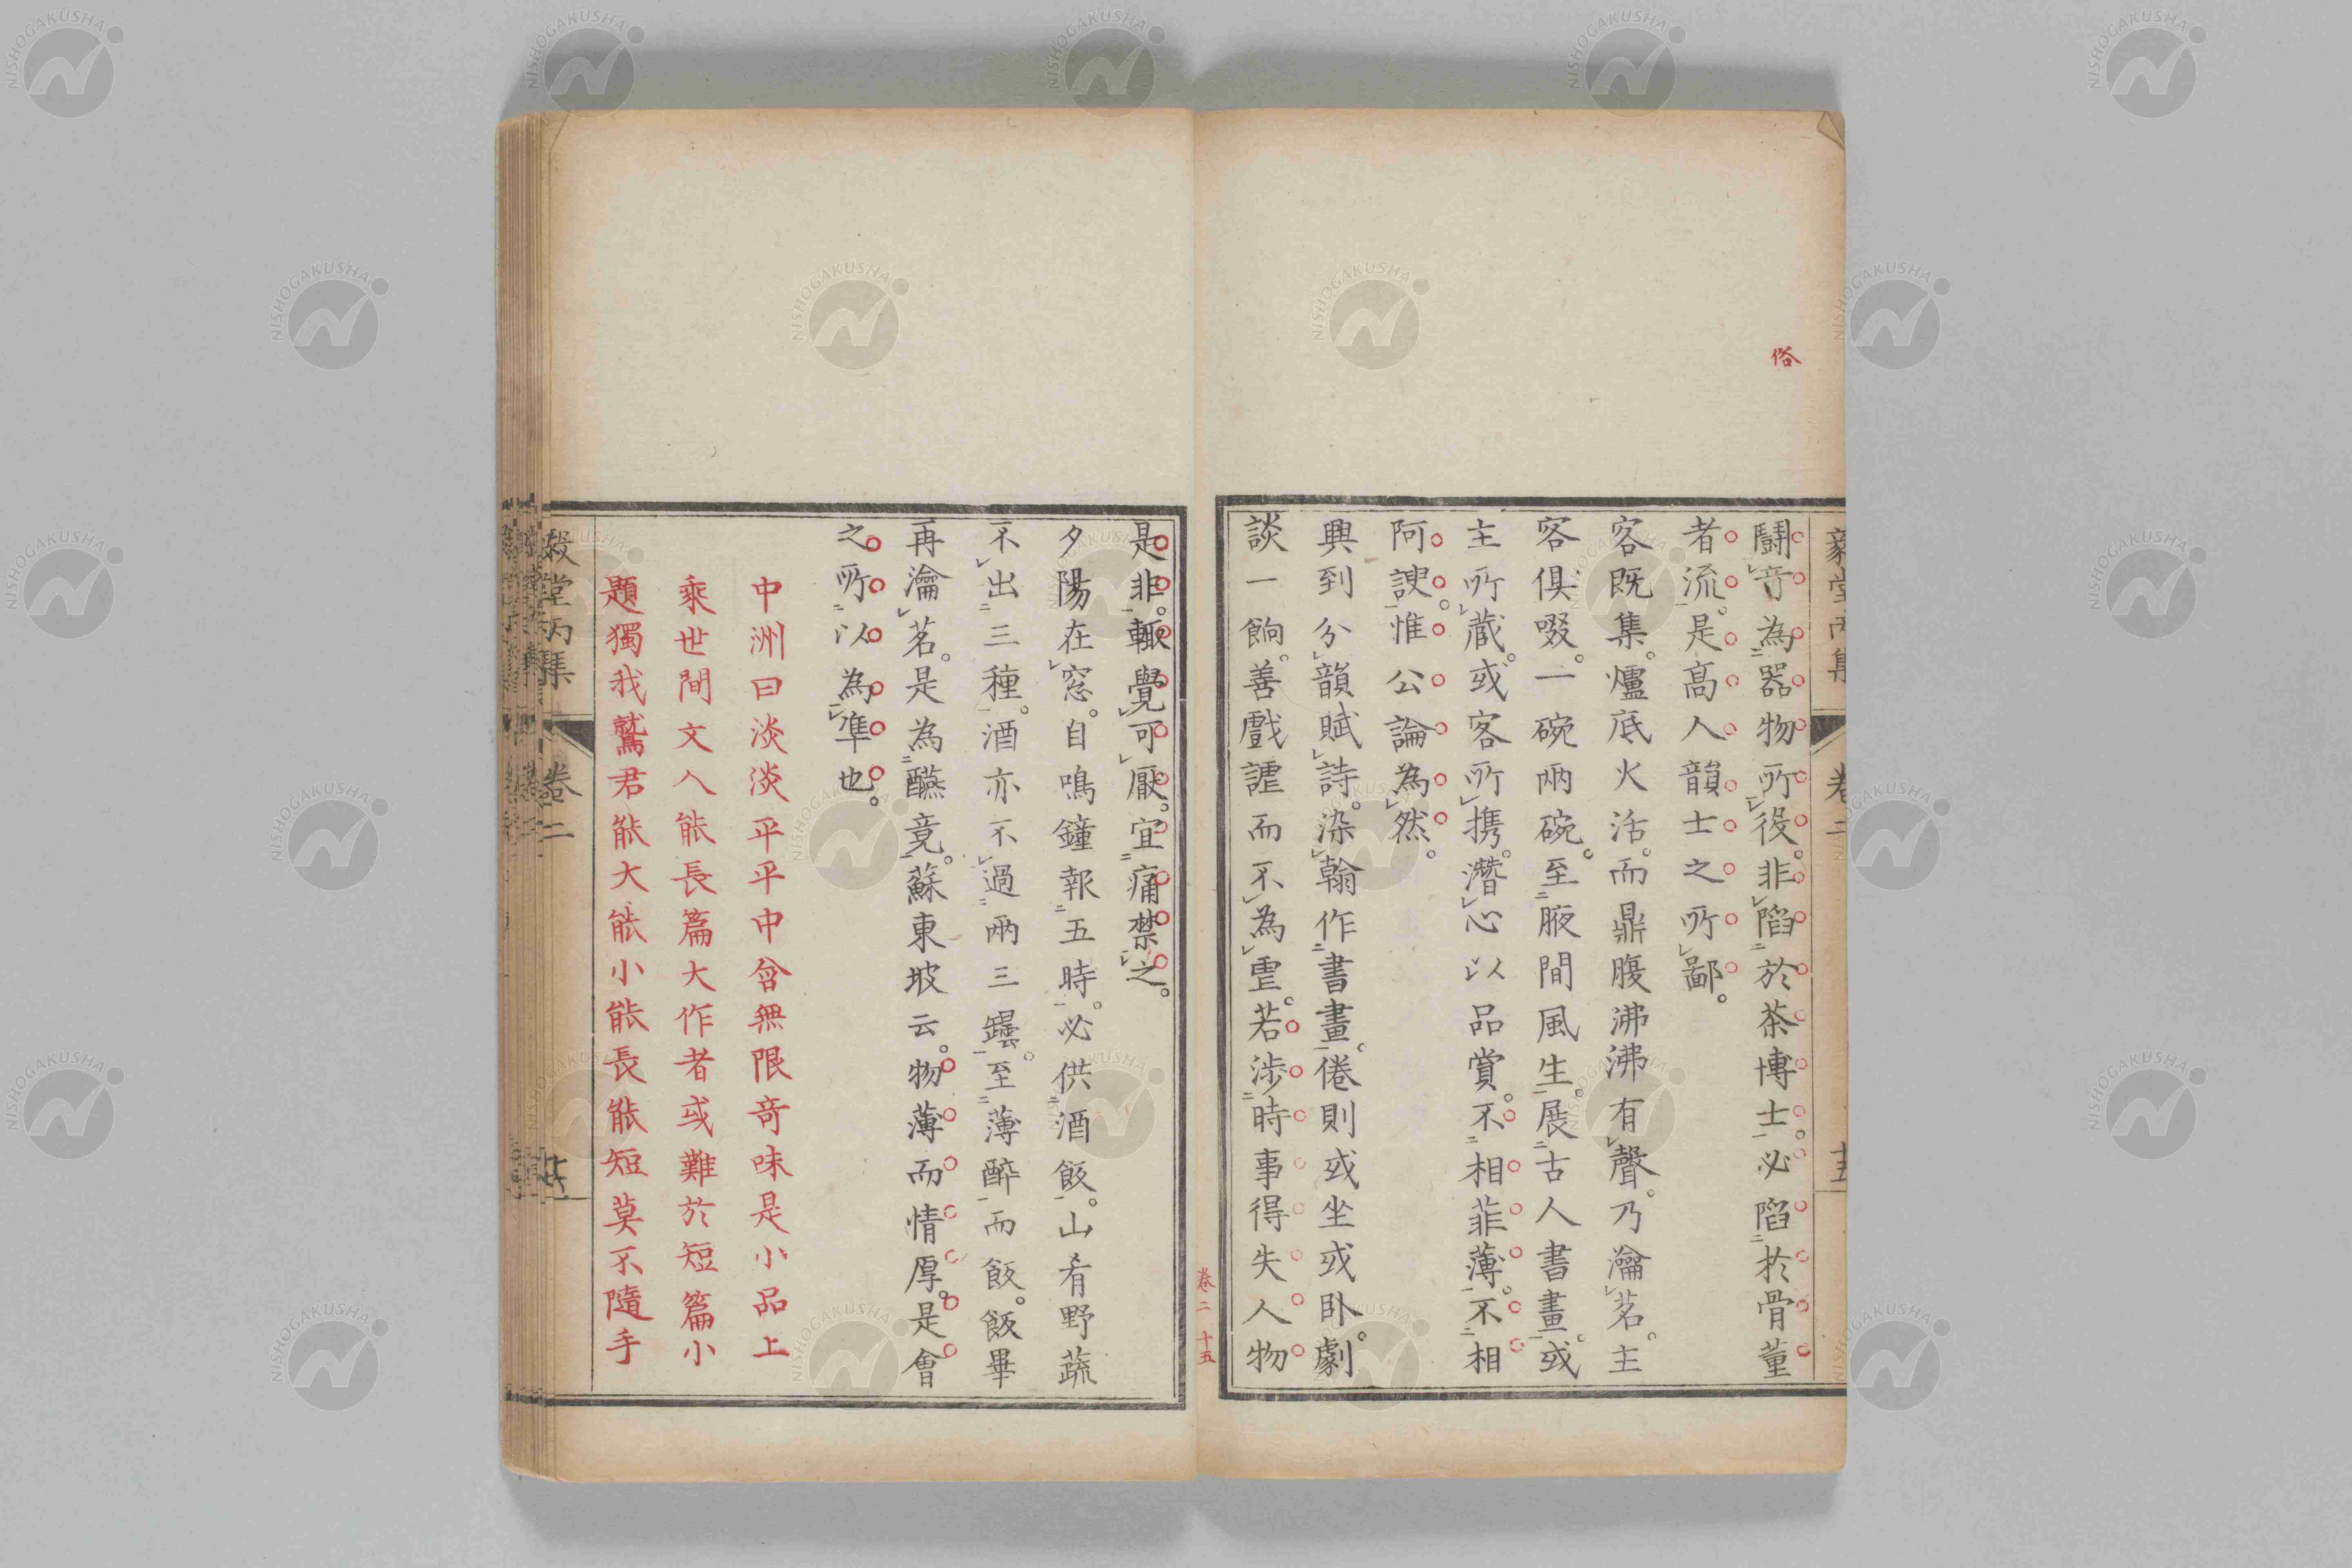 俗
鬪音為器物所役。非陷於茶博士。必陷於骨董
者流。是高人韻士之所鄙。
客既集。爐底火活。而鼎腹沸沸有聲。乃瀹茗。主
客俱啜。一碗兩碗。至腋間風生。展古人書畫。或
主所藏。或客所携。潛心以品賞。不相菲薄。不相
阿諛。惟公論為然。
興到分韻賦詩。染翰作書畫。倦則或坐或臥。劇
談一餉。善戲謔而不為虐。若涉時事得失人物
卷二 十五
是非。輒覺可厭。宜痛禁之。
夕陽在窓。自鳴鐘報五時。必供酒飯。山肴野蔬
不出三種。酒亦不過兩三罎。至薄醉而飯。飯畢
再瀹茗。是為醼竟。蘇東坡云。物薄而情厚。是會
之所以為準也。
中洲曰淡淡平平中含無限奇味是小品上
乘世間文人能長篇大作者或難於短篇小
題獨我鷲君能大能小能長能短莫不隨手
毅堂丙集 卷二